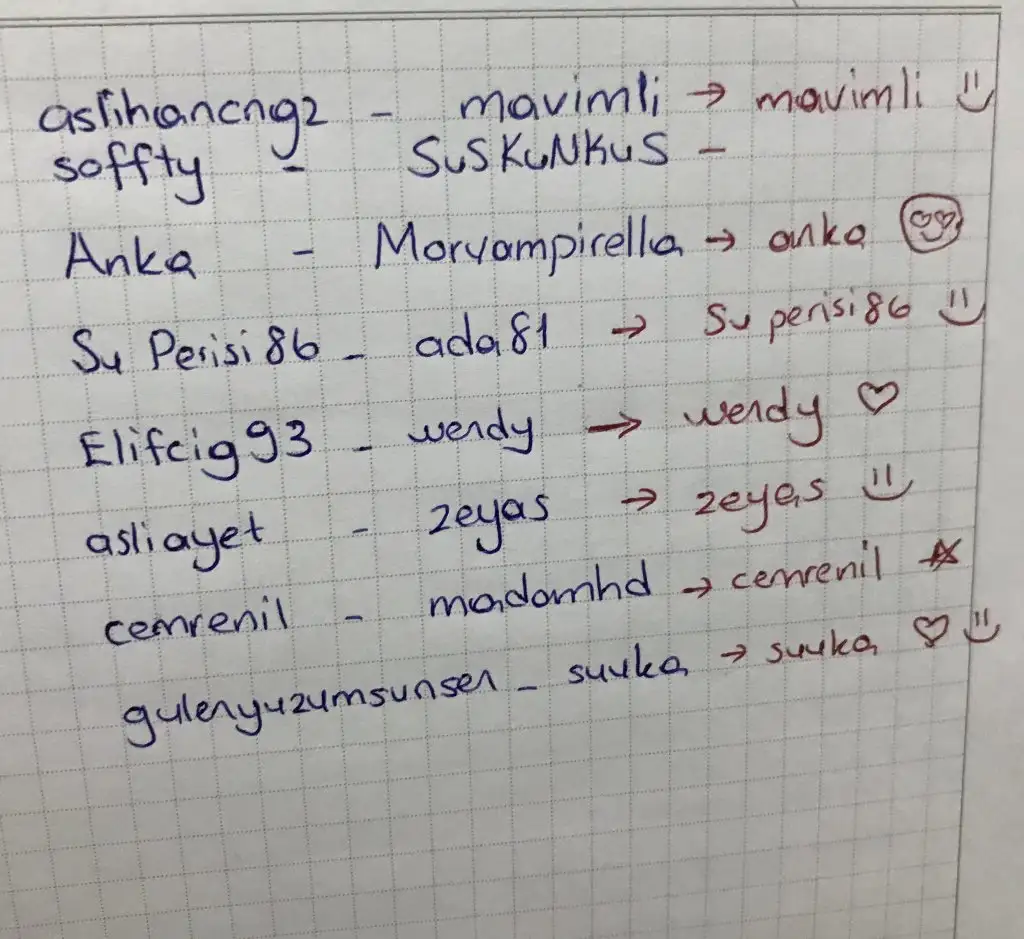 aslihancngz - mavimli → mavimli
soffty - SuSKuNKuS -
Anka - Morvampirella → anka
Su Perisi 86 - ada81 → Su perisi86
Elifcig93 - wendy → wendy
asliayet - zeyas → zeyas
cemrenil - madamhd → cemrenil
gulenyuzumsunsen - suuka → suuka